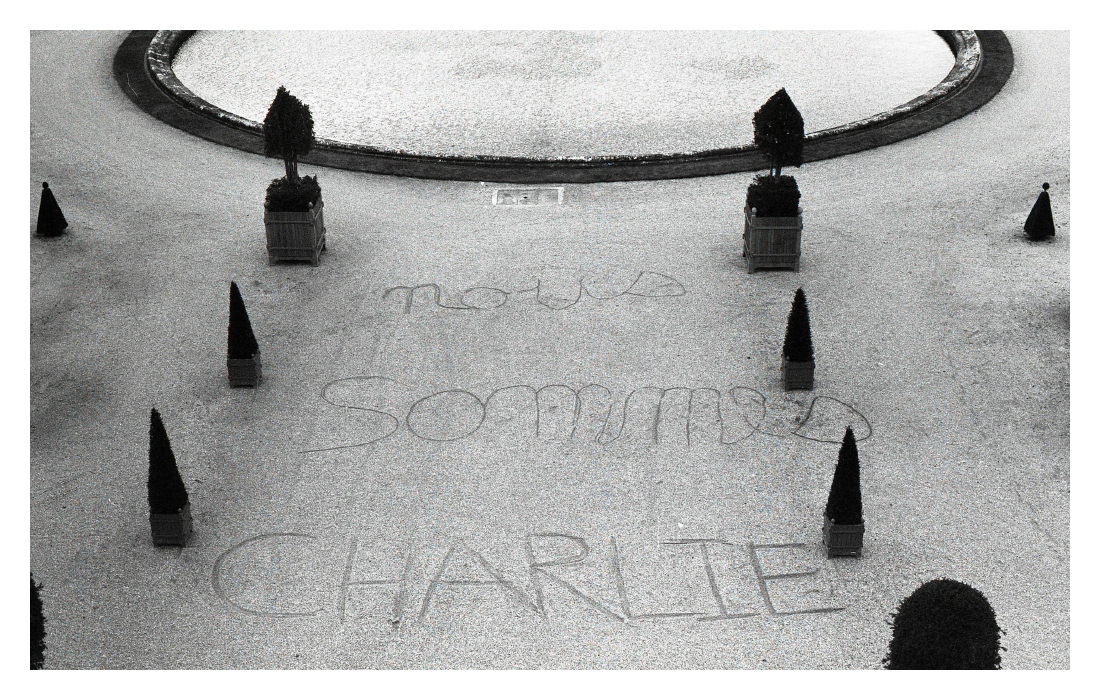 nous
Sommes
CHARLIE